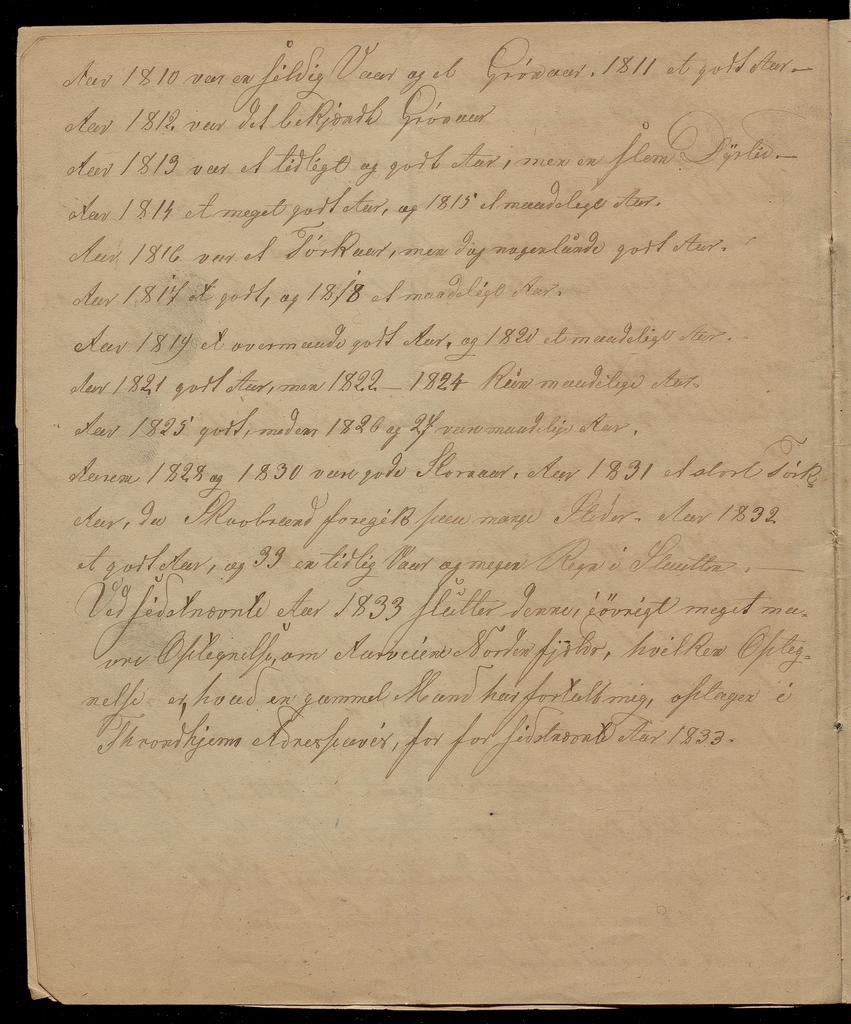 Aar 1810 var en sildig Vaar og et Grönaar. 1811 et godt Aar.—
Aar 1812. var det bekjendte Grönaar
Aar 1813 var et tidligt og godt Aar, men en slem Dyrtid.—
Aar 1814 et meget godt Aar, og 1815 et maadeligt Aar.
Aar 1816 var et Törkaar, men dog nogenlunde godt Aar.
Aar 1817 et godt, og 1818 et maadeligt Aar.
Aar 1819 et overmaade godt Aar, og 1820 et maadeligt Aar.—
Aar 1821 godt Aar, men 1822—1824 Kun maadelige Aar.
Aar 1825 godt, medens 1826 og 27 vare maadelige Aar.
Aarene 1828 og 1830 vare gode Kornaar. Aar 1831 et stort Törk-
Aar, da Skovbrænd foregik paa mange Steder. Aar 1832
et godt Aar, og 33 en tidlig Vaar og megen Regn i Slaatten.—
Ved sidstnævnte Aar 1833 slutter denne, iövrigt meget ma-
vre Optegnelse, om Aarveiene Nordenfjelds, hvilken Opteg-
nelse er, hvad en gammel Mand har fortalt mig, optagen i
Throndhjems Adresseavis, for for sidstnævnte Aar 1833.